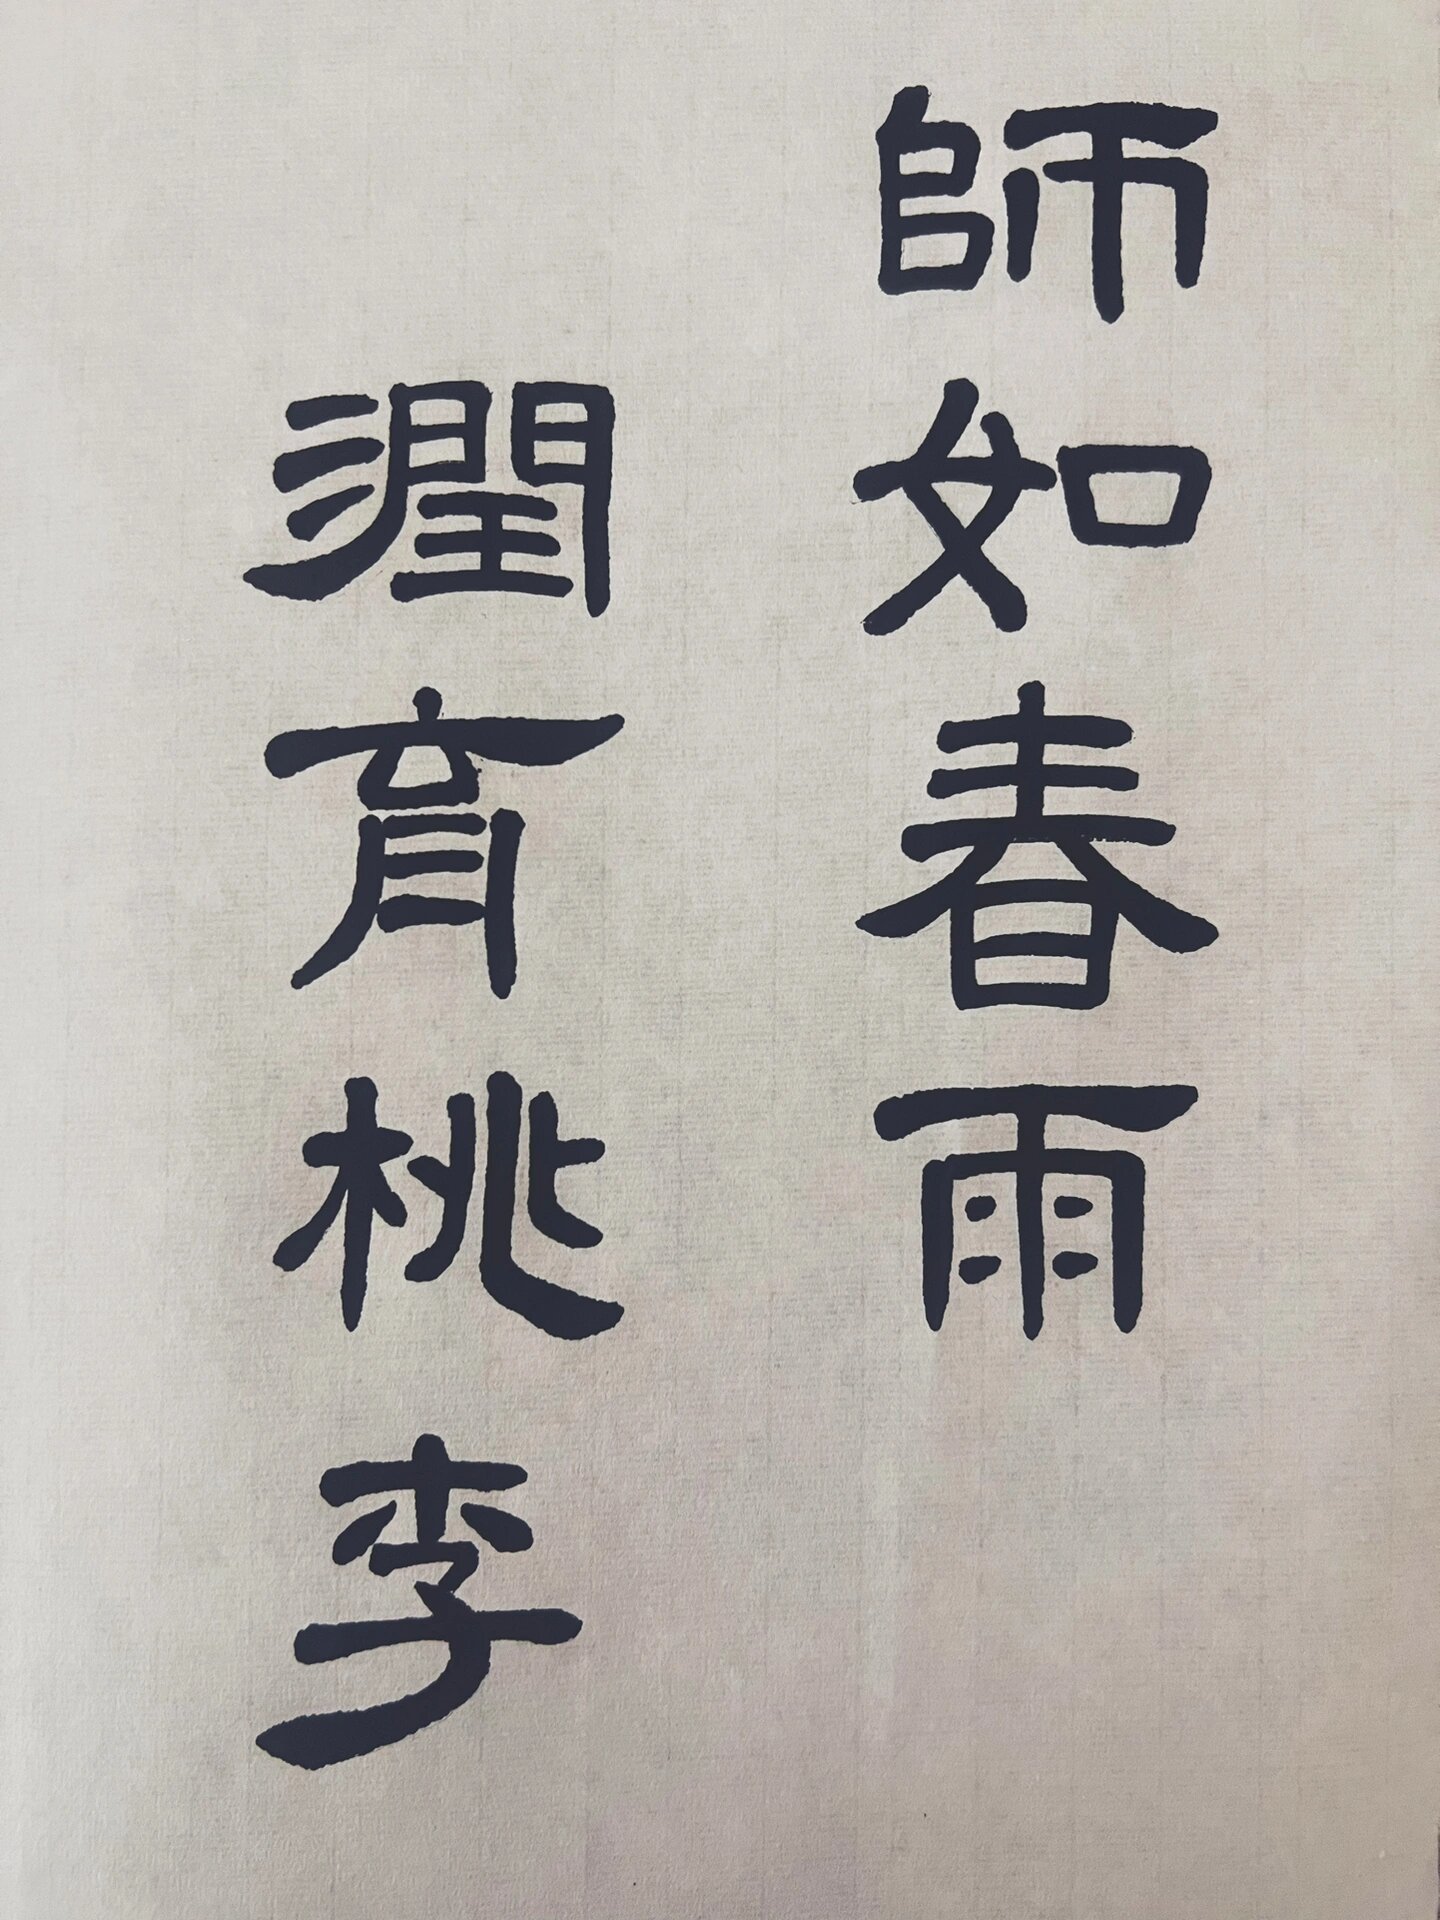 師如春雨
潤育桃李